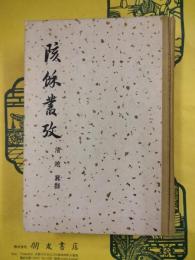 陔餘叢攷
清 趙 翼 撰
朋友書店